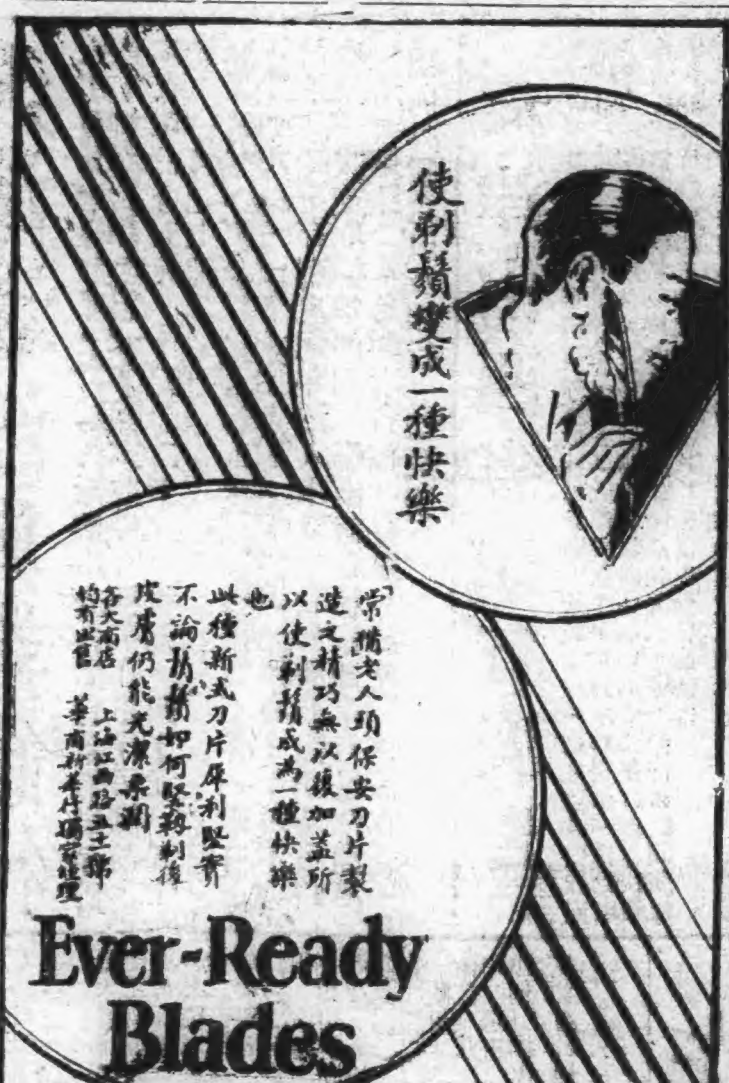 使剃鬚變成一種快樂
老人頭保安刀片製
造之精巧無以復加蓋所
以使剃鬚成為一種快樂
也
此種新式刀片犀利堅實
不論鬍鬚如何堅韌剃後
皮膚仍能光潔柔潤
各大商店
均有出售
上海江西路五十號
華商新華行獨家經理
Ever-Ready
Blades